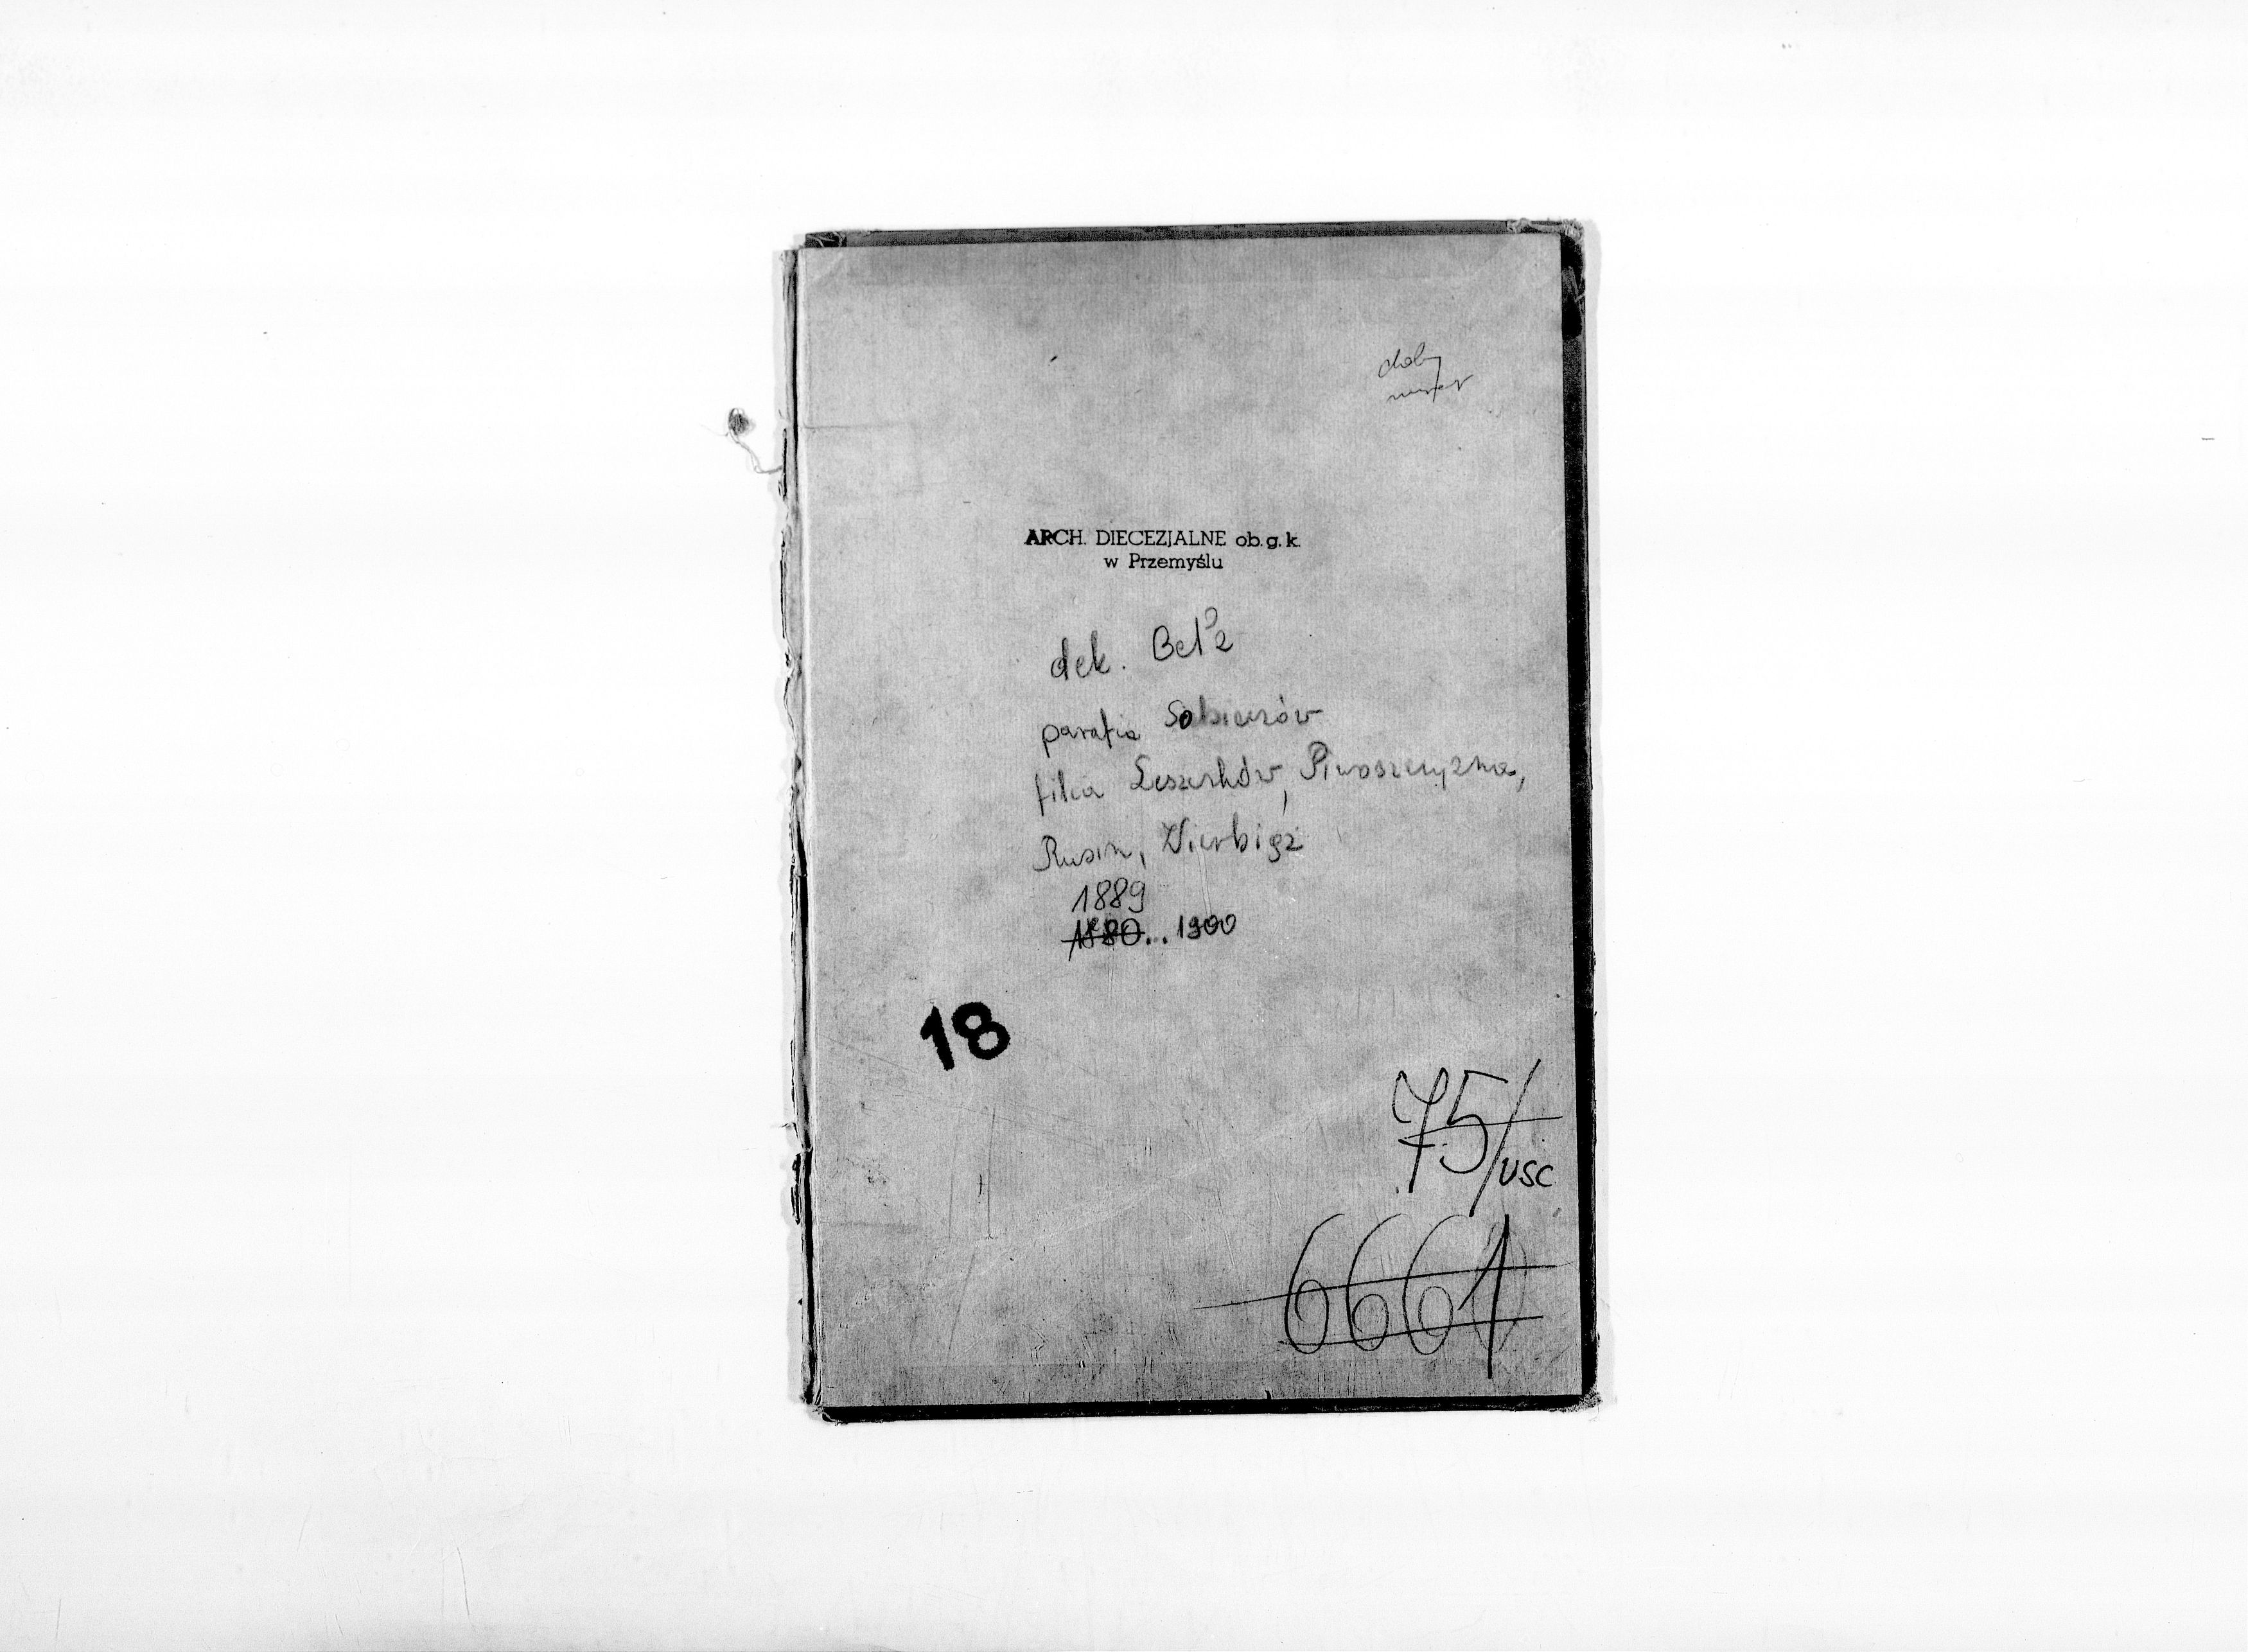 ARCH. DIECEZJALNE ob. g. k.
w Przemyślu
dek. Bełz
parafia
filia Leszczków, Piwoszczyzna,
Rusin, Wierbiąż
1889
1880.. 1900
18
75/USC
6661